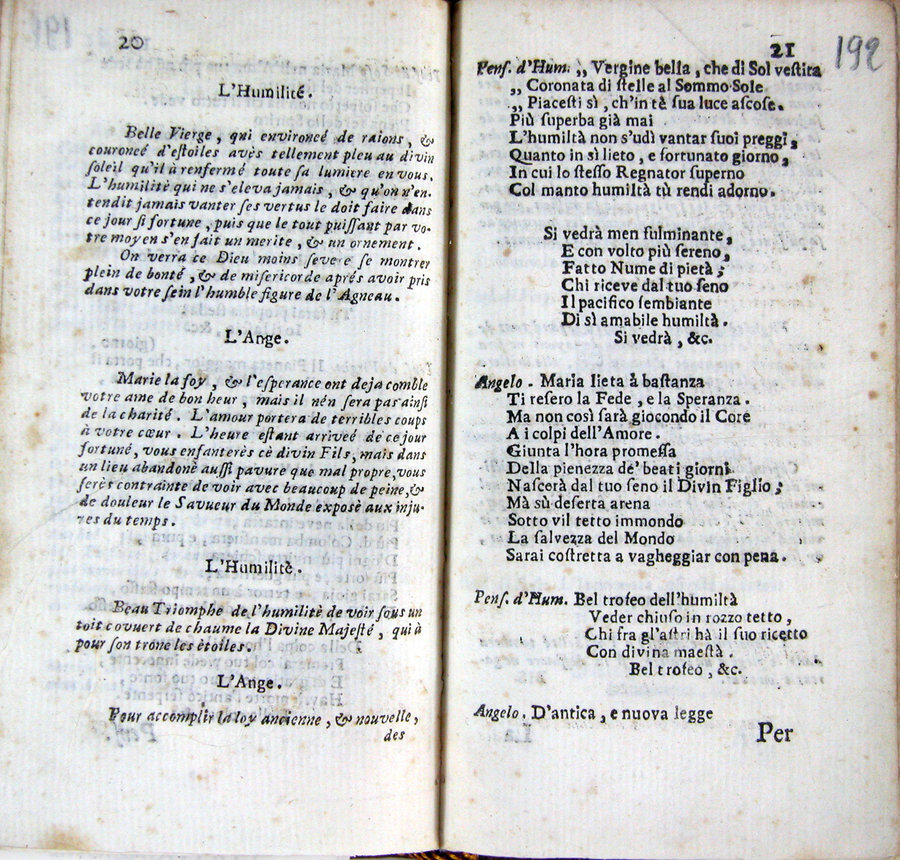 20
L'Humilité.
Belle Vierge, qui environcé de raions, &
couroncé d'estoiles avès tellement pleu au divin
soleil qu'il à renfermé toute sa lumiere en vous.
L'humilitè qui ne s'eleva jamais, & qu'on n'en-
tendit jamais vanter ses vertus le doit faire dans
ce jour si fortune, puis que le tout puissant par vo-
tre moyen s'en fait un merite, & un ornement.
On verra ce Dieu moins severe se montrer
plein de bonté, & de misericorde aprés avoir pris
dans votre sein l'humble figure de l'Agneau.
L'Ange.
Marie la foy, & l'esperance ont deja comble
votre ame de bon heur, mais il nén sera pas ainsi
de la charité. L'amour portera de terribles coups
à votre cœur. L'heure estant arriveé de ce jour
fortuné, vous enfanterès ce divin Fils, mais dans
un lieu abandonè aussi pavure que mal propre, vous
serès contrainte de voir avec beaucoup de peine, &
de douleur le Savueur du Monde exposè aux inju-
res du temps.
L'Humilitè.
Beau Triomphe de l'humilitè de voir sous un
toit covuert de chaume la Divine Majesté, qui à
pour son trone les ètoiles.
L'Ange.
Pour accomplir la loy ancienne, & nouvelle,
des
21
192
Pens. d'Hum. ,, Vergine bella, che di Sol vestita
,, Coronata di stelle al Sommo Sole
,, Piacesti sì, ch'in tè sua luce ascose.
Più superba già mai
L'humiltà non s'udì vantar suoi preggi,
Quanto in sì lieto, e fortunato giorno,
In cui lo stesso Regnator superno
Col manto humiltà tù rendi adorno.
Si vedrà men fulminante,
E con volto più sereno,
Fatto Nume di pietà;
Chi riceve dal tuo seno
Il pacifico sembiante
Di sì amabile humiltà.
Si vedrà, &c.
Angelo. Maria lieta à bastanza
Ti resero la Fede, e la Speranza.
Ma non così sarà giocondo il Core
A i colpi dell'Amore.
Giunta l'hora promessa
Della pienezza de' beati giorni
Nascerà dal tuo seno il Divin Figlio;
Mà sù deserta arena
Sotto vil tetto immondo
La salvezza del Mondo
Sarai costretta a vagheggiar con pena.
Pens. d'Hum. Bel trofeo dell'humiltà
Veder chiuso in rozzo tetto,
Chi fra gl'astri hà il suo ricetto
Con divina maestà.
Bel trofeo, &c.
Angelo. D'antica, e nuova legge
Per